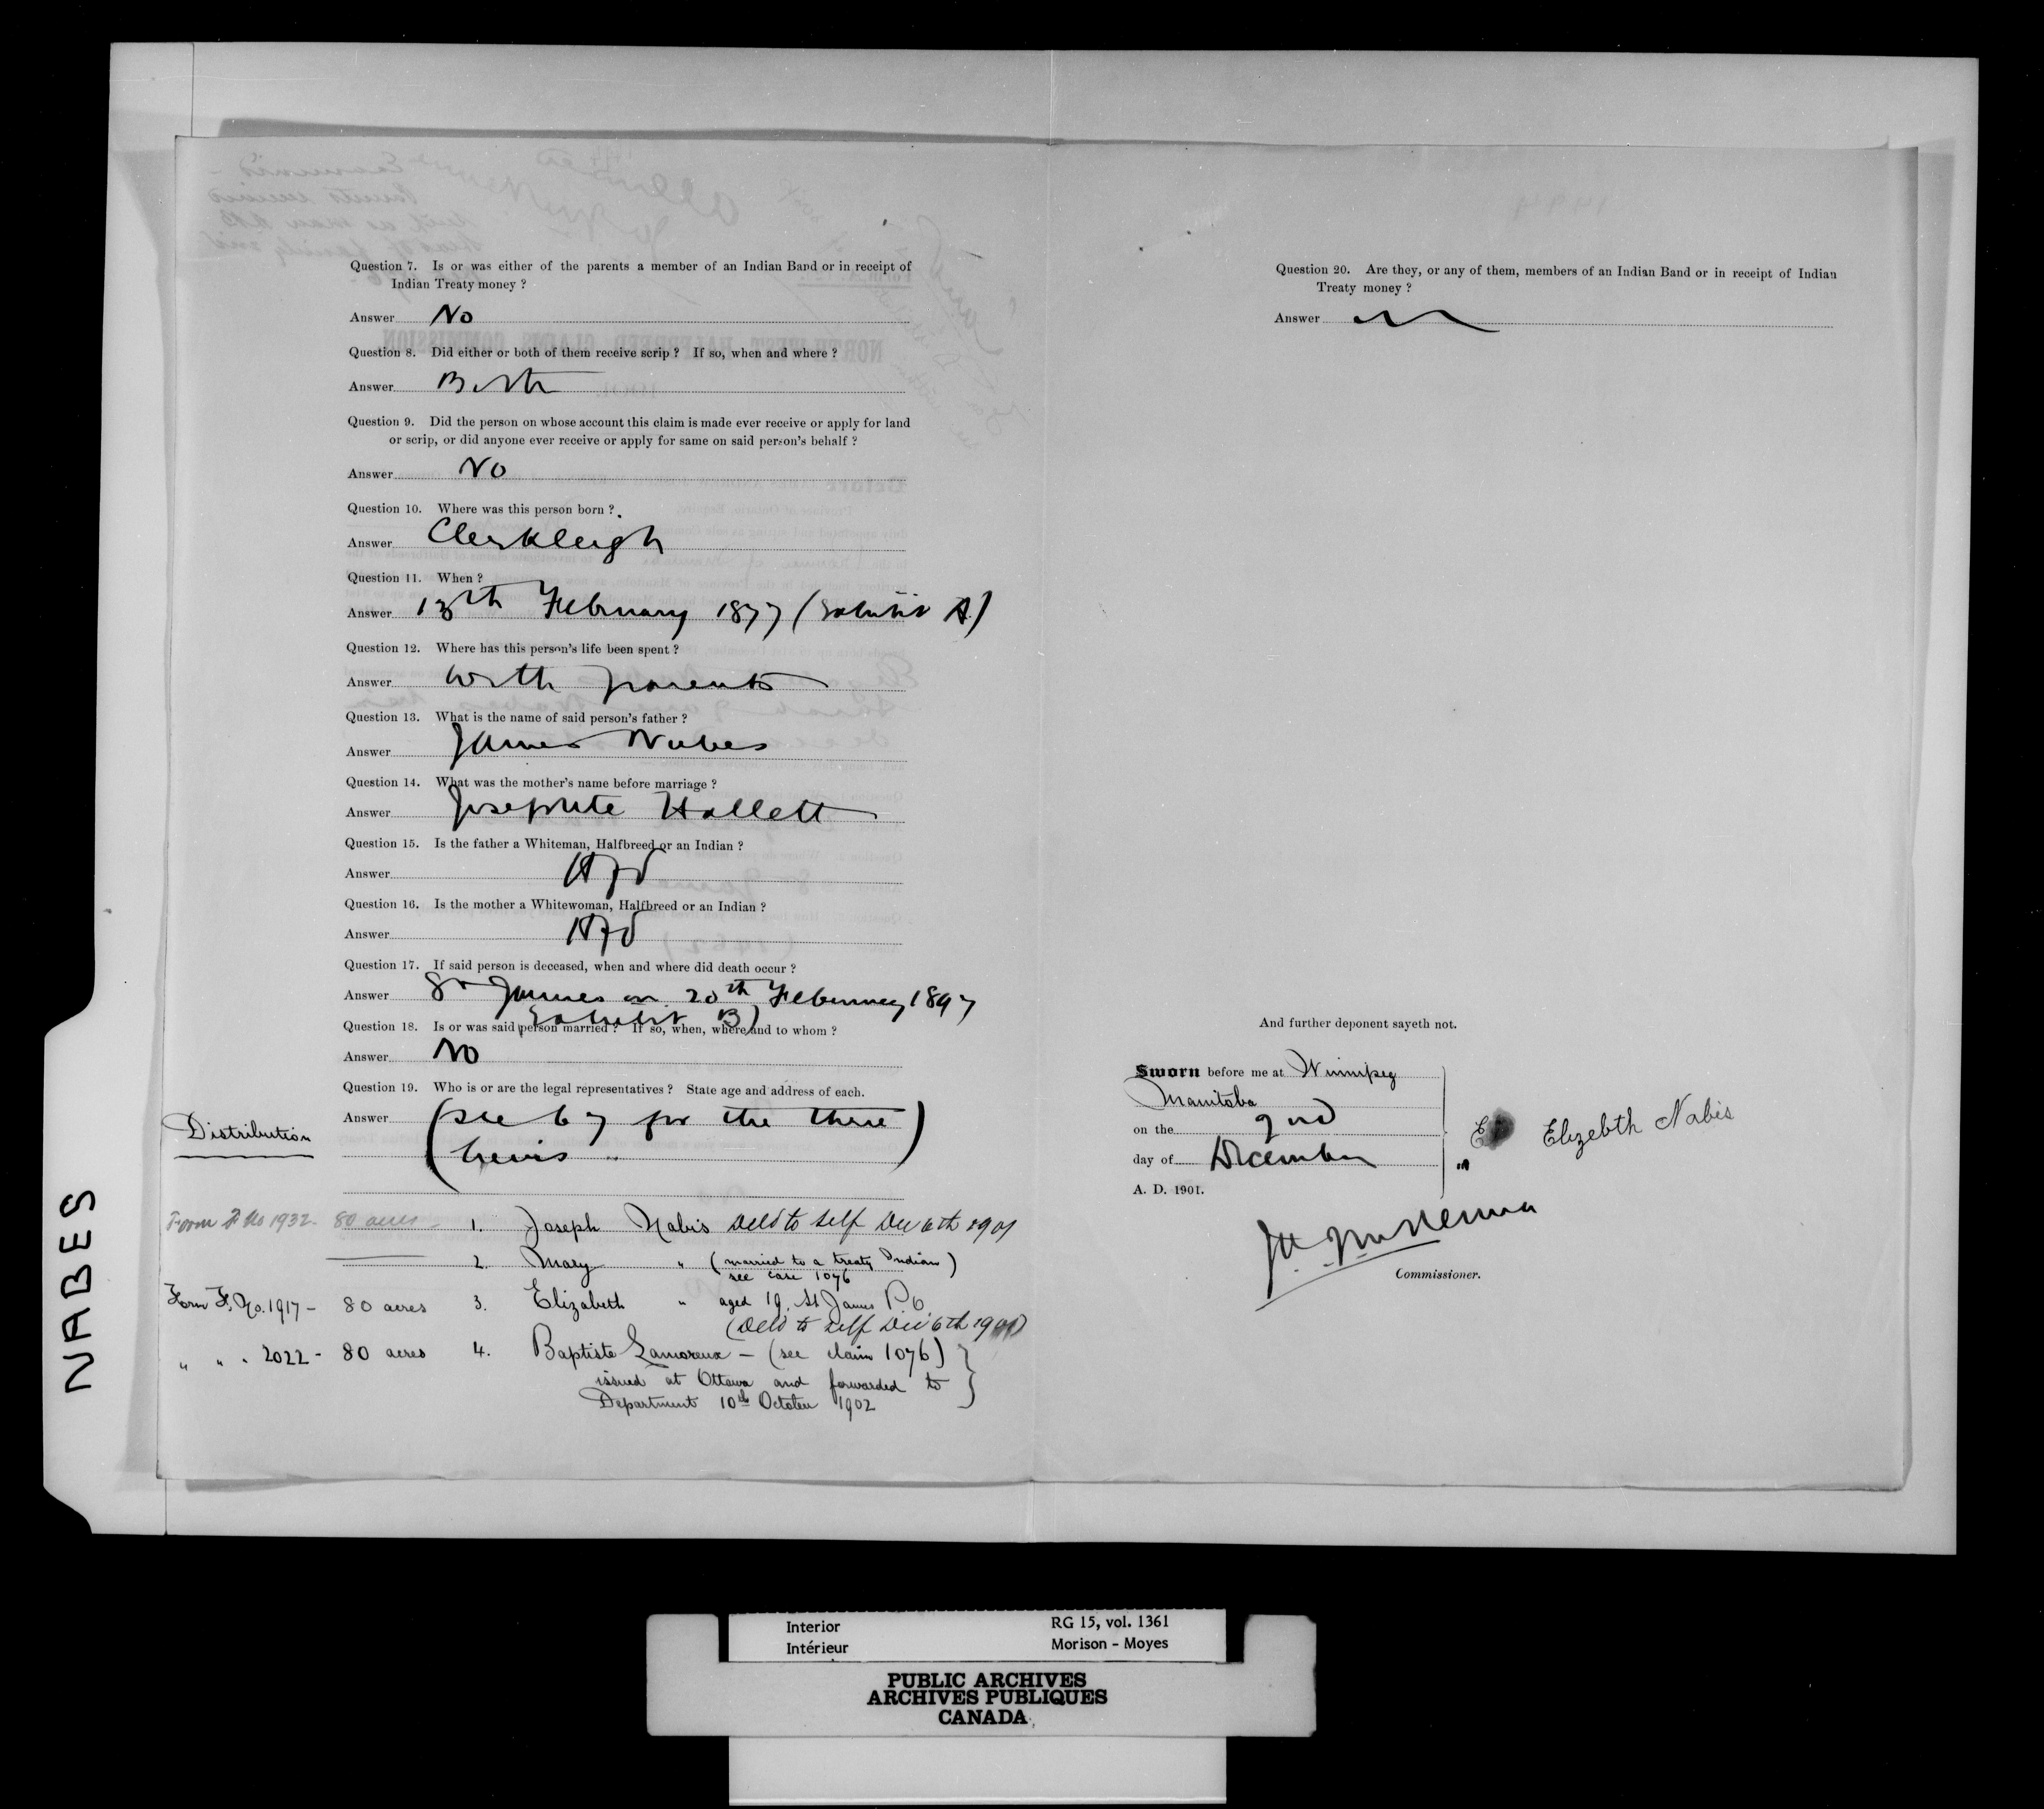 Question 7. Is or was either of the parents a member of an Indian Band or in receipt of
Indian Treaty money ?
Answer No
Question 8. Did either or both of them receive scrip ? If so, when and where ?
Answer Both
Question 9. Did the person on whose account this claim is made ever receive or apply for land
or scrip, or did anyone ever receive or apply for same on said person's behalf ?
Answer No
Question 10. Where was this person born ?
Answer Clerkleigh
Question 11. When ?
Answer 13th February 1877 (Exhibit A)
Question 12. Where has this person's life been spent ?
Answer With parents
Question 13. What is the name of said person's father ?
Answer James Nabes
Question 14. What was the mother's name before marriage ?
Answer Josephte Hallett
Question 15. Is the father a Whiteman, Halfbreed or an Indian ?
Answer
Question 16. Is the mother a Whitewoman, Halfbreed or an Indian ?
Answer
Question 17. If said person is deceased, when and where did death occur ?
Answer St James on 20th February 1897
Exhibit B)
Question 18. Is or was said person married ? If so, when, where and to whom ?
Answer No
Question 19. Who is or are the legal representatives ? State age and address of each.
Answer (see 67 for the three
heirs)
Distribution
Form F No 1932 - 80 acres - 1. Joseph Nabis Deld to self Dec 6th 1901
2. Mary " (married to a treaty Indian)
see case 1076
Form F. No. 1917 - 80 acres 3. Elizabeth " aged 19. St James P.O.
(Deld to self Dec 6th 1901)
" " " 2022 - 80 acres 4. Baptiste Lamoreux - (see claim 1076)
issued at Ottawa and forwarded to
Department 10th October 1902
NABES
Question 20. Are they, or any of them, members of an Indian Band or in receipt of Indian
Treaty money ?
Answer
And further deponent sayeth not.
Sworn before me at Winnipeg
Manitoba
on the 2nd
day of December
A. D. 1901.
Elizebth Nabis
McKenna
Commissioner.
Interior
Intérieur
RG 15, vol. 1361
Morison - Moyes
PUBLIC ARCHIVES
ARCHIVES PUBLIQUES
CANADA